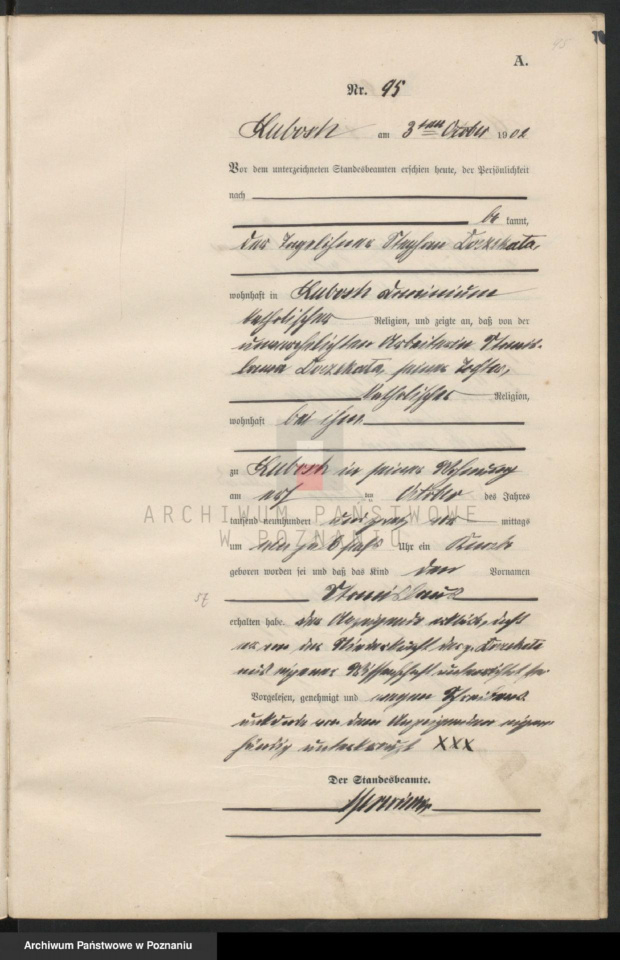 A.
95
Nr. 95
Kubosch am 3ten October 1902
Vor dem unterzeichneten Standesbeamten erschien heute, der Persönlichkeit
nach
be kannt,
der Tagelöhner Stephan
wohnhaft in Kubosch Dominium
katholischer Religion, und zeigte an, daß von der
unverehelichten Arbeiterin Stanis-
lawa seiner Tochter,
katholischer Religion,
wohnhaft bei ihm
zu Kubosch in seiner Wohnung
am ten October des Jahres
tausend neunhundert und zwei vor mittags
um Uhr ein Knabe
geboren worden sei und daß das Kind den Vornamen
57
Stanislaus
erhalten habe. Der Anzeigende erklärte, daß
er von der Niederkunft der p.
aus eigener Wissenschaft unterrichtet sei
Vorgelesen, genehmigt und wegen Schreibens
unkunde von dem Anzeigenden eigen-
händig unterkreuzt XXX
Der Standesbeamte.
ARCHIWUM PAŃSTWOWE
W POZNANIU
Archiwum Państwowe w Poznaniu